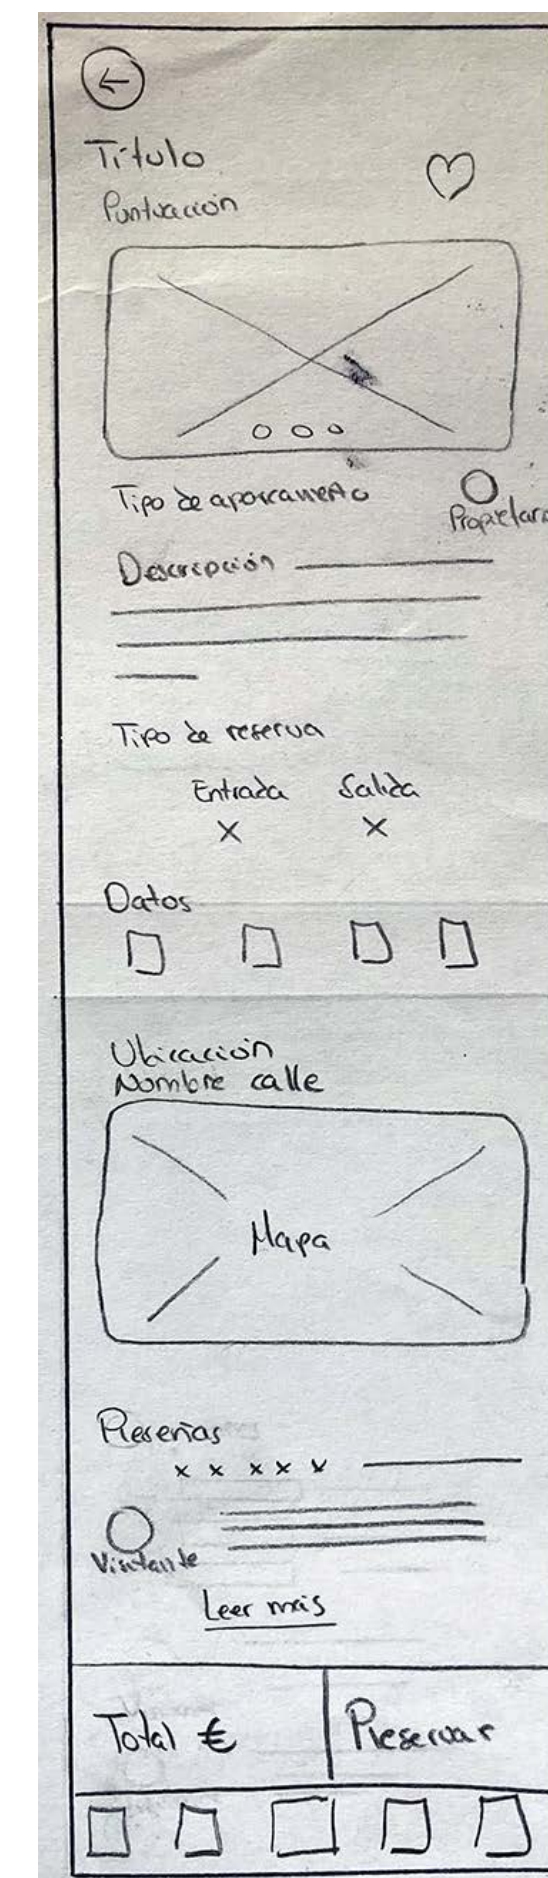 Título
Puntuación
Tipo de aparcamiento
Propietario
Descripción
Tipo de reserva
Entrada Salida
X X
Datos
Ubicación
Nombre calle
Mapa
Reseñas
x x x x x
Visitante
Leer más
Total € Reservar